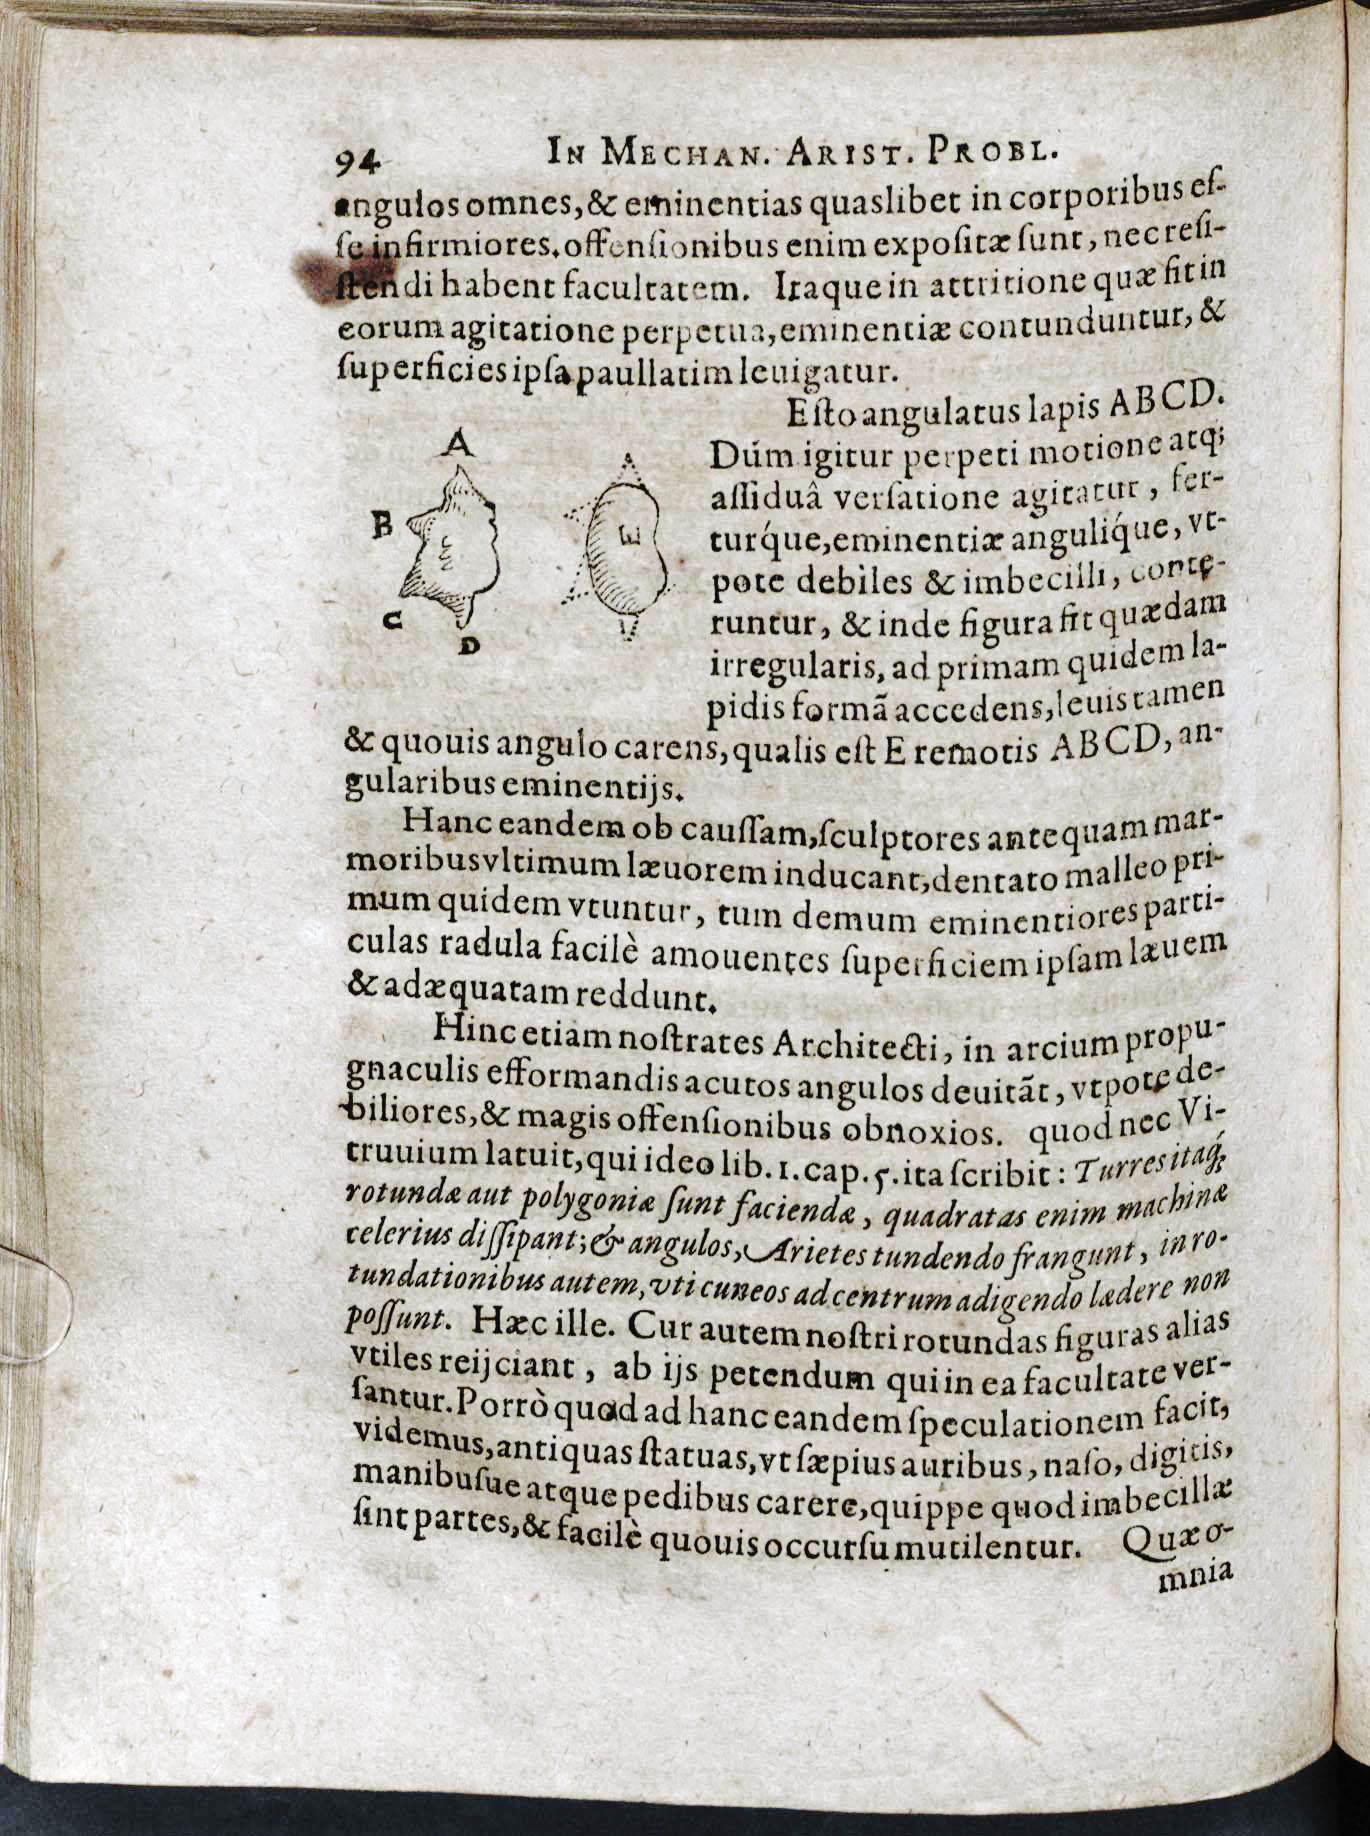 94 IN MECHAN. ARIST. PROBL.
angulos omnes, & eminentias quaslibet in corporibus eſ-
ſe infirmiores. offenſionibus enim expoſitæ ſunt, nec reſi-
ſtendi habent facultatem. Itaque in attritione quæ fit in
eorum agitatione perpetua, eminentiæ contunduntur, &
ſuperficies ipſa paullatim leuigatur.
Eſto angulatus lapis ABCD.
Dúm igitur perpeti motione atq;
aſſiduâ verſatione agitatur, fer-
turq́ue, eminentiæ anguliq́ue, vt-
pote debiles & imbecilli, conte-
runtur, & inde figura fit quædam
irregularis, ad primam quidem la-
pidis formã accedens, leuis tamen
A
B
C
D
E
& quouis angulo carens, qualis eſt E remotis ABCD, an-
gularibus eminentijs.
Hanc eandem ob cauſſam, ſculptores antequam mar-
moribus vltimum læuorem inducant, dentato malleo pri-
mum quidem vtuntur, tum demum eminentiores parti-
culas radula facilè amouentes ſuperficiem ipſam læuem
& adæquatam reddunt.
Hinc etiam noſtrates Architecti, in arcium propu-
gnaculis efformandis acutos angulos deuitãt, vtpote de-
biliores, & magis offenſionibus obnoxios. quod nec Vi-
truuium latuit, qui ideo lib. 1. cap. 5. ita ſcribit: Turres itaq́;
rotundæ aut polygoniæ ſunt faciendæ, quadratas enim machinæ
celerius diſſipant; & angulos, Arietes tundendo frangunt, in ro-
tundationibus autem, vti cuneos ad centrum adigendo lædere non
poſſunt. Hæc ille. Cur autem noſtri rotundas figuras alias
vtiles reijciant, ab ijs petendum qui in ea facultate ver-
ſantur. Porrò quod ad hanc eandem ſpeculationem facit,
videmus, antiquas ſtatuas, vt ſæpius auribus, naſo, digitis,
manibuſue atque pedibus carere, quippe quod imbecillæ
ſint partes, & facilè quouis occurſu mutilentur. Quæ o-
mnia